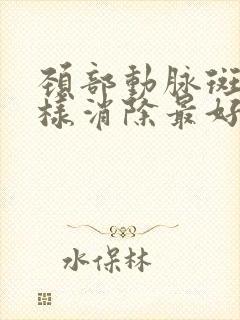 頚部動脉斑
様消除最好
水保林